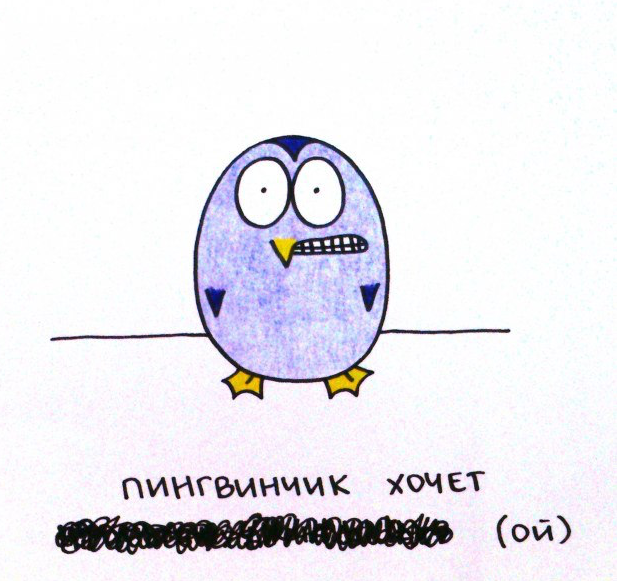 пингвинчик хочет
(ой)